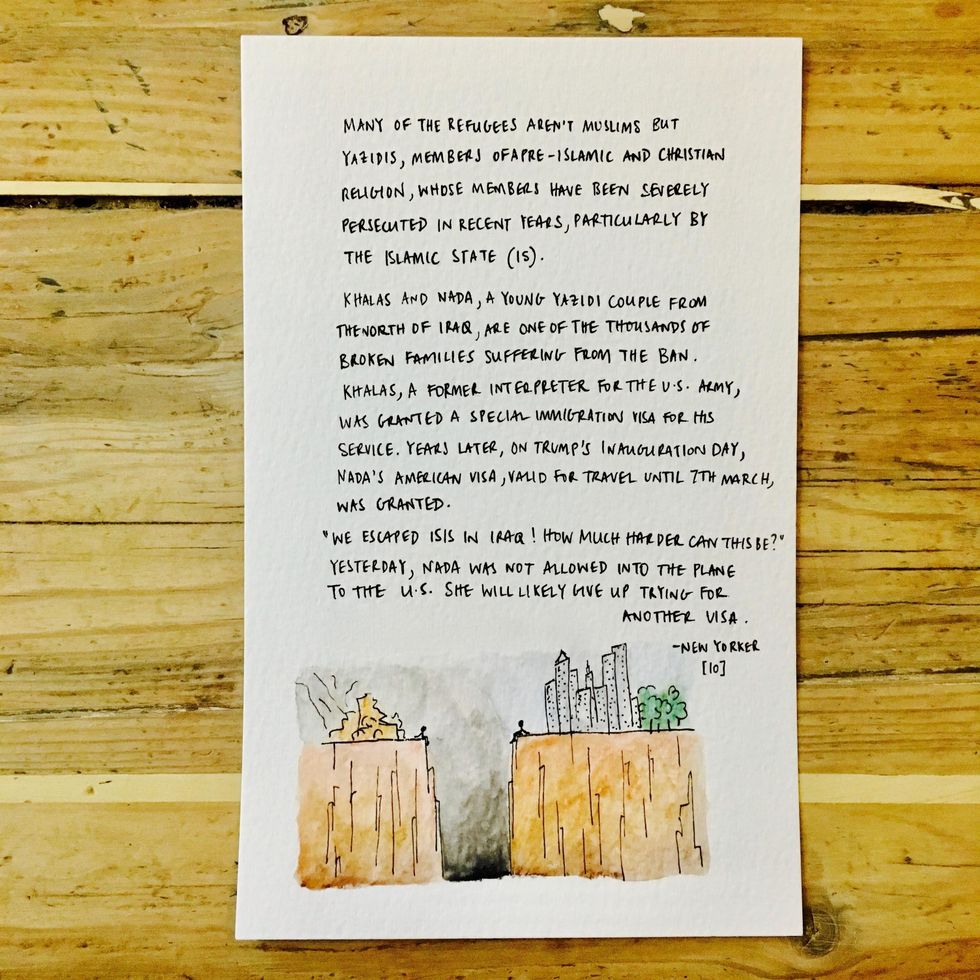 MANY OF THE REFUGEES AREN'T MUSLIMS BUT
YAZIDIS, MEMBERS OF A PRE-ISLAMIC AND CHRISTIAN
RELIGION, WHOSE MEMBERS HAVE BEEN SEVERELY
PERSECUTED IN RECENT YEARS, PARTICULARLY BY
THE ISLAMIC STATE (IS).
KHALAS AND NADA, A YOUNG YAZIDI COUPLE FROM
THE NORTH OF IRAQ, ARE ONE OF THE THOUSANDS OF
BROKEN FAMILIES SUFFERING FROM THE BAN.
KHALAS, A FORMER INTERPRETER FOR THE U.S. ARMY,
WAS GRANTED A SPECIAL IMMIGRATION VISA FOR HIS
SERVICE. YEARS LATER, ON TRUMP'S INAUGURATION DAY,
NADA'S AMERICAN VISA, VALID FOR TRAVEL UNTIL 7TH MARCH,
WAS GRANTED.
"WE ESCAPED ISIS IN IRAQ! HOW MUCH HARDER CAN THIS BE?"
YESTERDAY, NADA WAS NOT ALLOWED INTO THE PLANE
TO THE U.S. SHE WILL LIKELY GIVE UP TRYING FOR
ANOTHER VISA.
-NEW YORKER
[10]